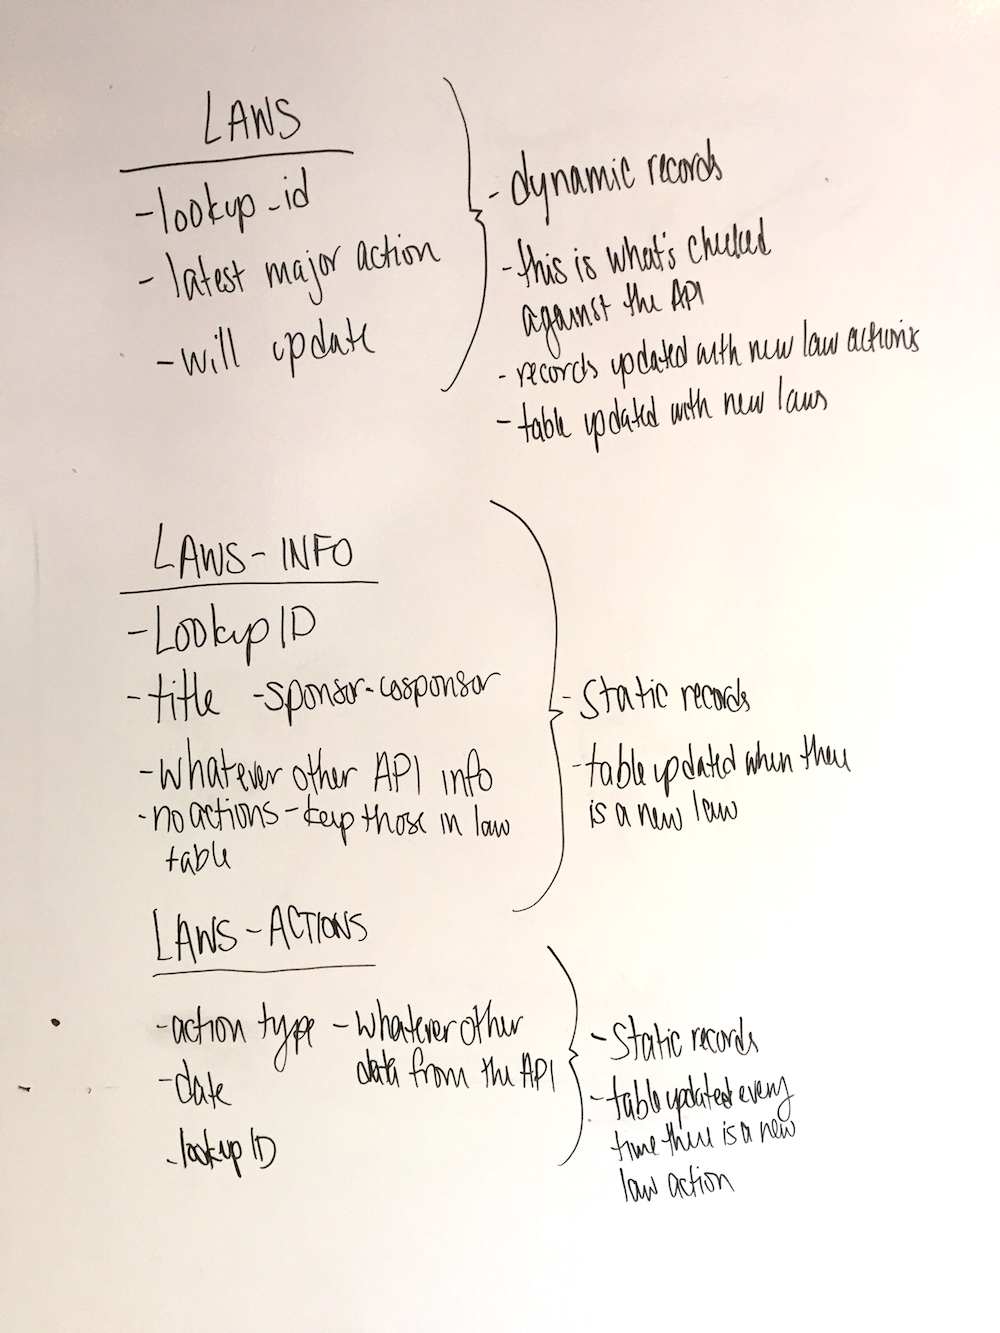 LAWS
-lookup-id
- latest major action
- will update
- dynamic records
- this is what's checked
against the API
- records updated with new law actions
- table updated with new laws
LAWS - INFO
- Lookup ID
- title - sponsor - cosponsor
- whatever other API info
- no actions - keep those in law
table
- Static records
- table updated when there
is a new law
LAWS - ACTIONS
- action type - whatever other
data from the API
- date
- lookup ID
- Static records
- table updated every
time there is a new
law action